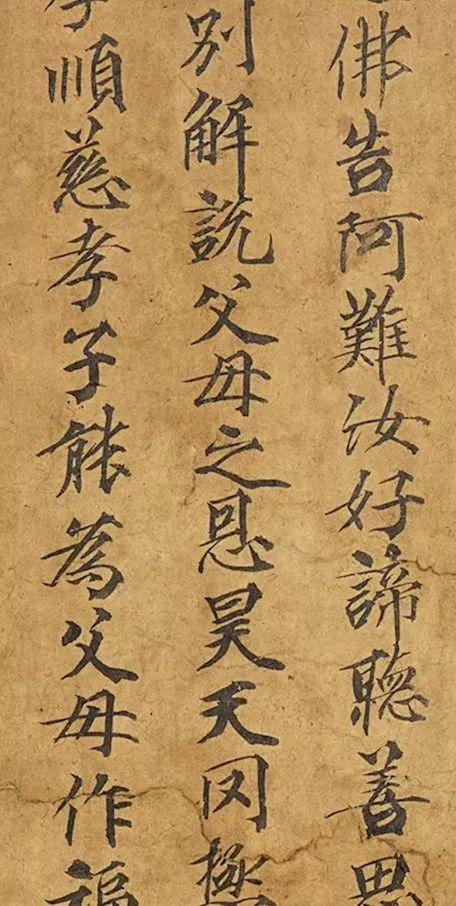 佛告阿難汝好諦聽善思
別解說父母之恩昊天罔極
孝順慈孝子能為父母作福